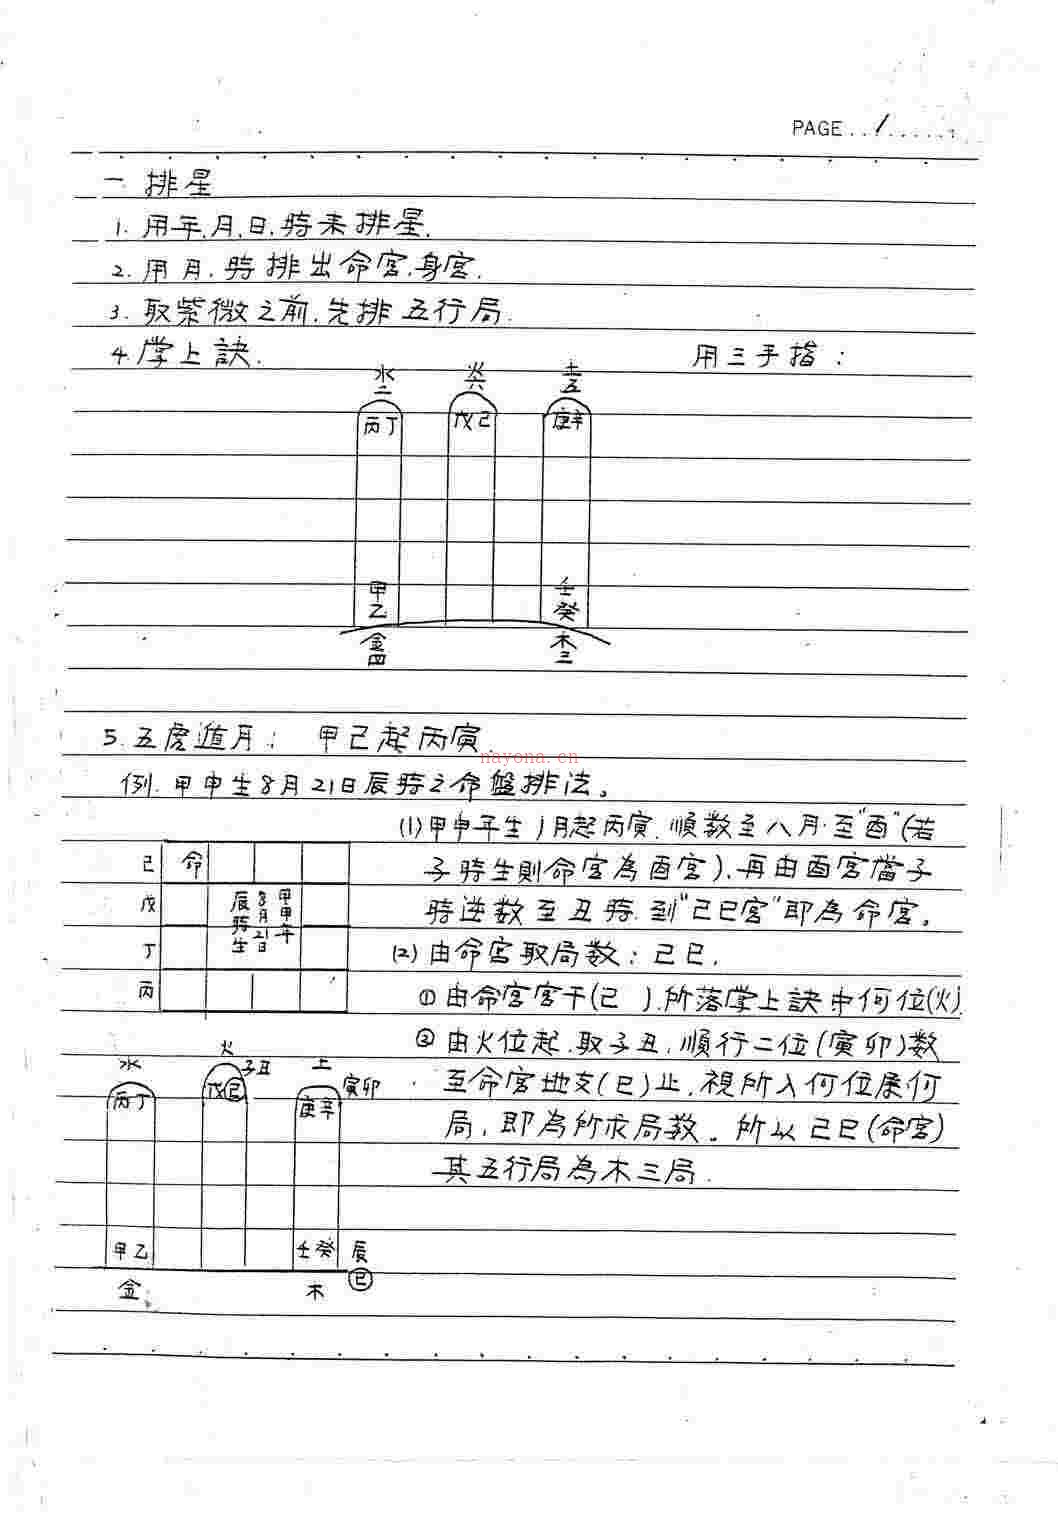 PAGE..1......
一 排星
1. 用年.月.日.時來排星.
2. 用月.時排出命宮.身宮.
3. 取紫微之前.先排五行局.
4. 掌上訣. 用三手指：
水二 火六 土五
丙丁 戊己 庚辛
甲乙 壬癸
金四 木三
5. 五虎遁月： 甲己起丙寅.
nayona.cn
例. 甲申生8月21日辰時之命盤排法。
(1)甲申年生1月起丙寅.順數至八月.至"酉"(若
子時生則命宮為酉宮).再由酉宮當子
時逆數至丑時.到"己巳宮"即為命宮。
己 命
戊
丁
丙
甲申年
8月21日
辰時生
(2)由命宮取局數：己巳.
①由命宮宮干(己).所落掌上訣中何位(火).
②由火位起.取子丑.順行二位(寅卯)數
至命宮地支(巳)止.視所入何位屬何
局.即為所求局數。所以己巳(命宮)
其五行局為木三局.
水 火 子丑 土 寅卯
丙丁 戊己 庚辛
甲乙 壬癸 辰
巳
金 木